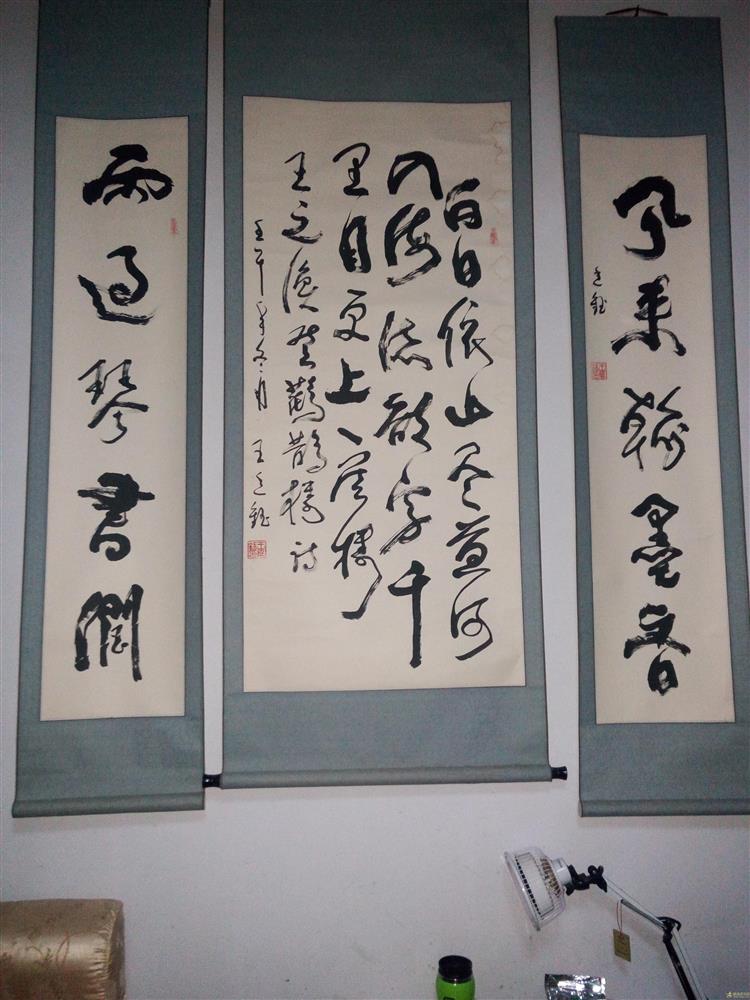 風来翰墨香
白日依山尽黄河
入海流欲穷千
里目更上一层楼
王之涣登鸛鵲楼诗
壬午年冬月 王
雨过琴書潤